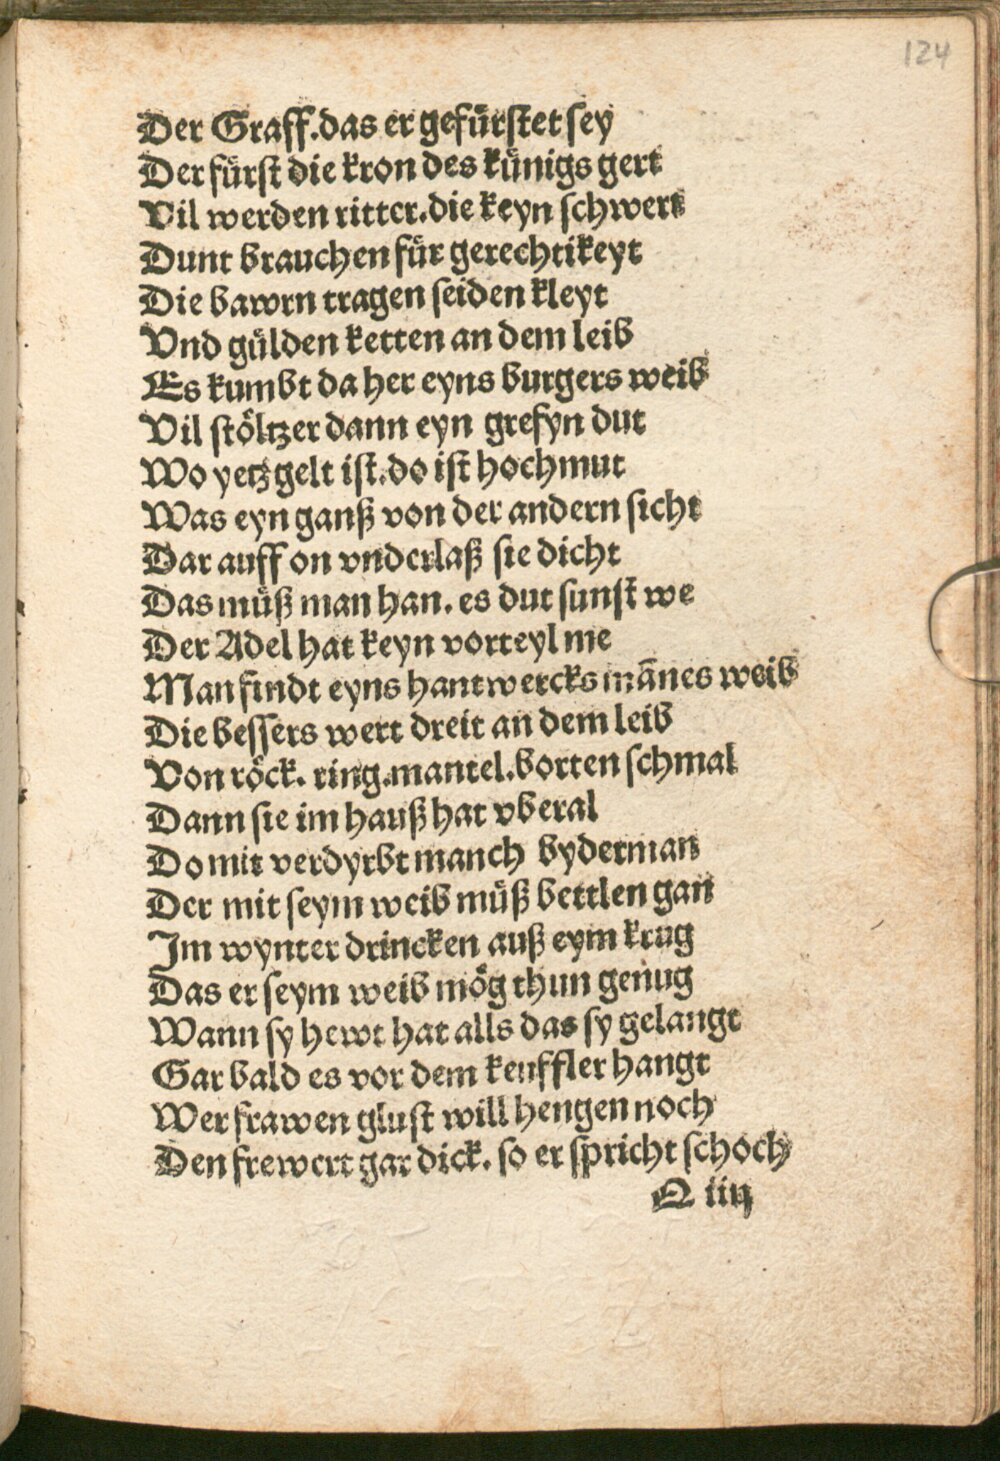 124
Der Graff.das er gefürstet sey
Der fürst die kron des künigs gert
Vil werden ritter.die keyn schwert
Dunt brauchen für gerechtikeyt
Die bawrn tragen seiden kleyt
Vnd gülden ketten an dem leib
Es kumbt da her eyns burgers weib
Vil stöltzer dann eyn grefyn dut
Wo yetz gelt ist.do ist hochmut
Was eyn ganß von der andern sicht
Dar auff on vnderlaß sie dicht
Das müß man han. es dut sunst we
Der Adel hat keyn vorteyl me
Man findt eyns hantwercks mānes weib
Die bessers wert dreit an dem leib
Von röck. ring.mantel.borten schmal
Dann sie im hauß hat vberal
Do mit verdyrbt manch byderman
Der mit seym weib müß bettlen gan
Im wynter drincken auß eym krug
Das er seym weib mög thun genug
Wann sy hewt hat alls das sy gelangt
Gar bald es vor dem keuffler hangt
Wer frawen glust will hengen noch
Den frewert gar dick. so er spricht schoch
Q iiij